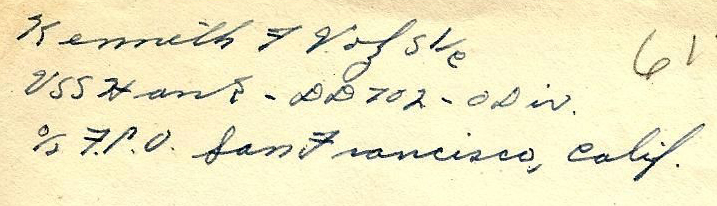 Kenneth F Volz S1/c
USS Hank - DD702 - O Div.
c/o F.P.O. San Francisco, Calif.
61